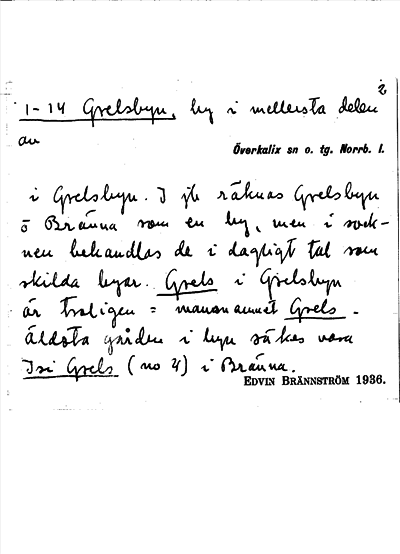 2
1-14 Grelsbyn, by i mellersta delen
av
Överkalix sn o. tg. Norrb. l.
i Grelsbyn. I jb räknas Grelsbyn
o Bränna som en by, men i sock-
nen behandlas de i dagligt tal som
skilda byar. Grels i Grelsbyn
är troligen = mansnamnet Grels.
Äldsta gården i byn säkes vara
Isi Grels (no 4) i Bränna.
EDVIN BRÄNNSTRÖM 1936.